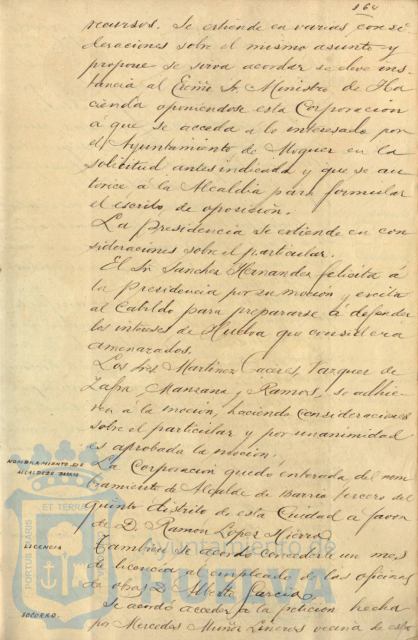 164
recursos. Se extiende en varias consi
deraciones sobre el mismo asunto y
propone se sirva acordar se eleve ins
tancia al Excmo Sr. Ministro de Ha
cienda oponiendose esta Corporacion
á que se acceda a lo interesado por
el Ayuntamiento de Moguer en la
solicitud antes indicada y que se au
torice á la Alcaldia para formular
el escrito de oposición.
La Presidencia se extiende en con
sideraciones sobre el particular.
El Sr. Sanchez Hernandez felicita á
la Presidencia por su moción y excita
al Cabildo para prepararse á defender
los intereses de Huelva que considera
amenazados.
Los Srs Martinez Caceres, Vazquez de
Zafra, Manzano y Ramos, se adhie
ren á la moción, haciendo consideraciones
sobre el particular y por unanimidad
es aprobada la moción.
NOMBRAMIENTO DE
ALCALDE DE BARRIO
La Corporación quedó enterada del nom
bramiento de Alcalde de Barrio tercero del
quinto distrito de esta Ciudad a favor
de D. Ramon Lopez Hierro.
LICENCIA
Tambien se acordó concederle un mes
de licencia al empleado de las oficinas
de obras D. Alberto Garcia.
SOCORRO.
Se acordó acceder a la petición hecha
por Mercedes Muñoz Lineros vecina de esta
PORTUS MARIS ET TERRAE
Ayuntamiento de
HUELVA